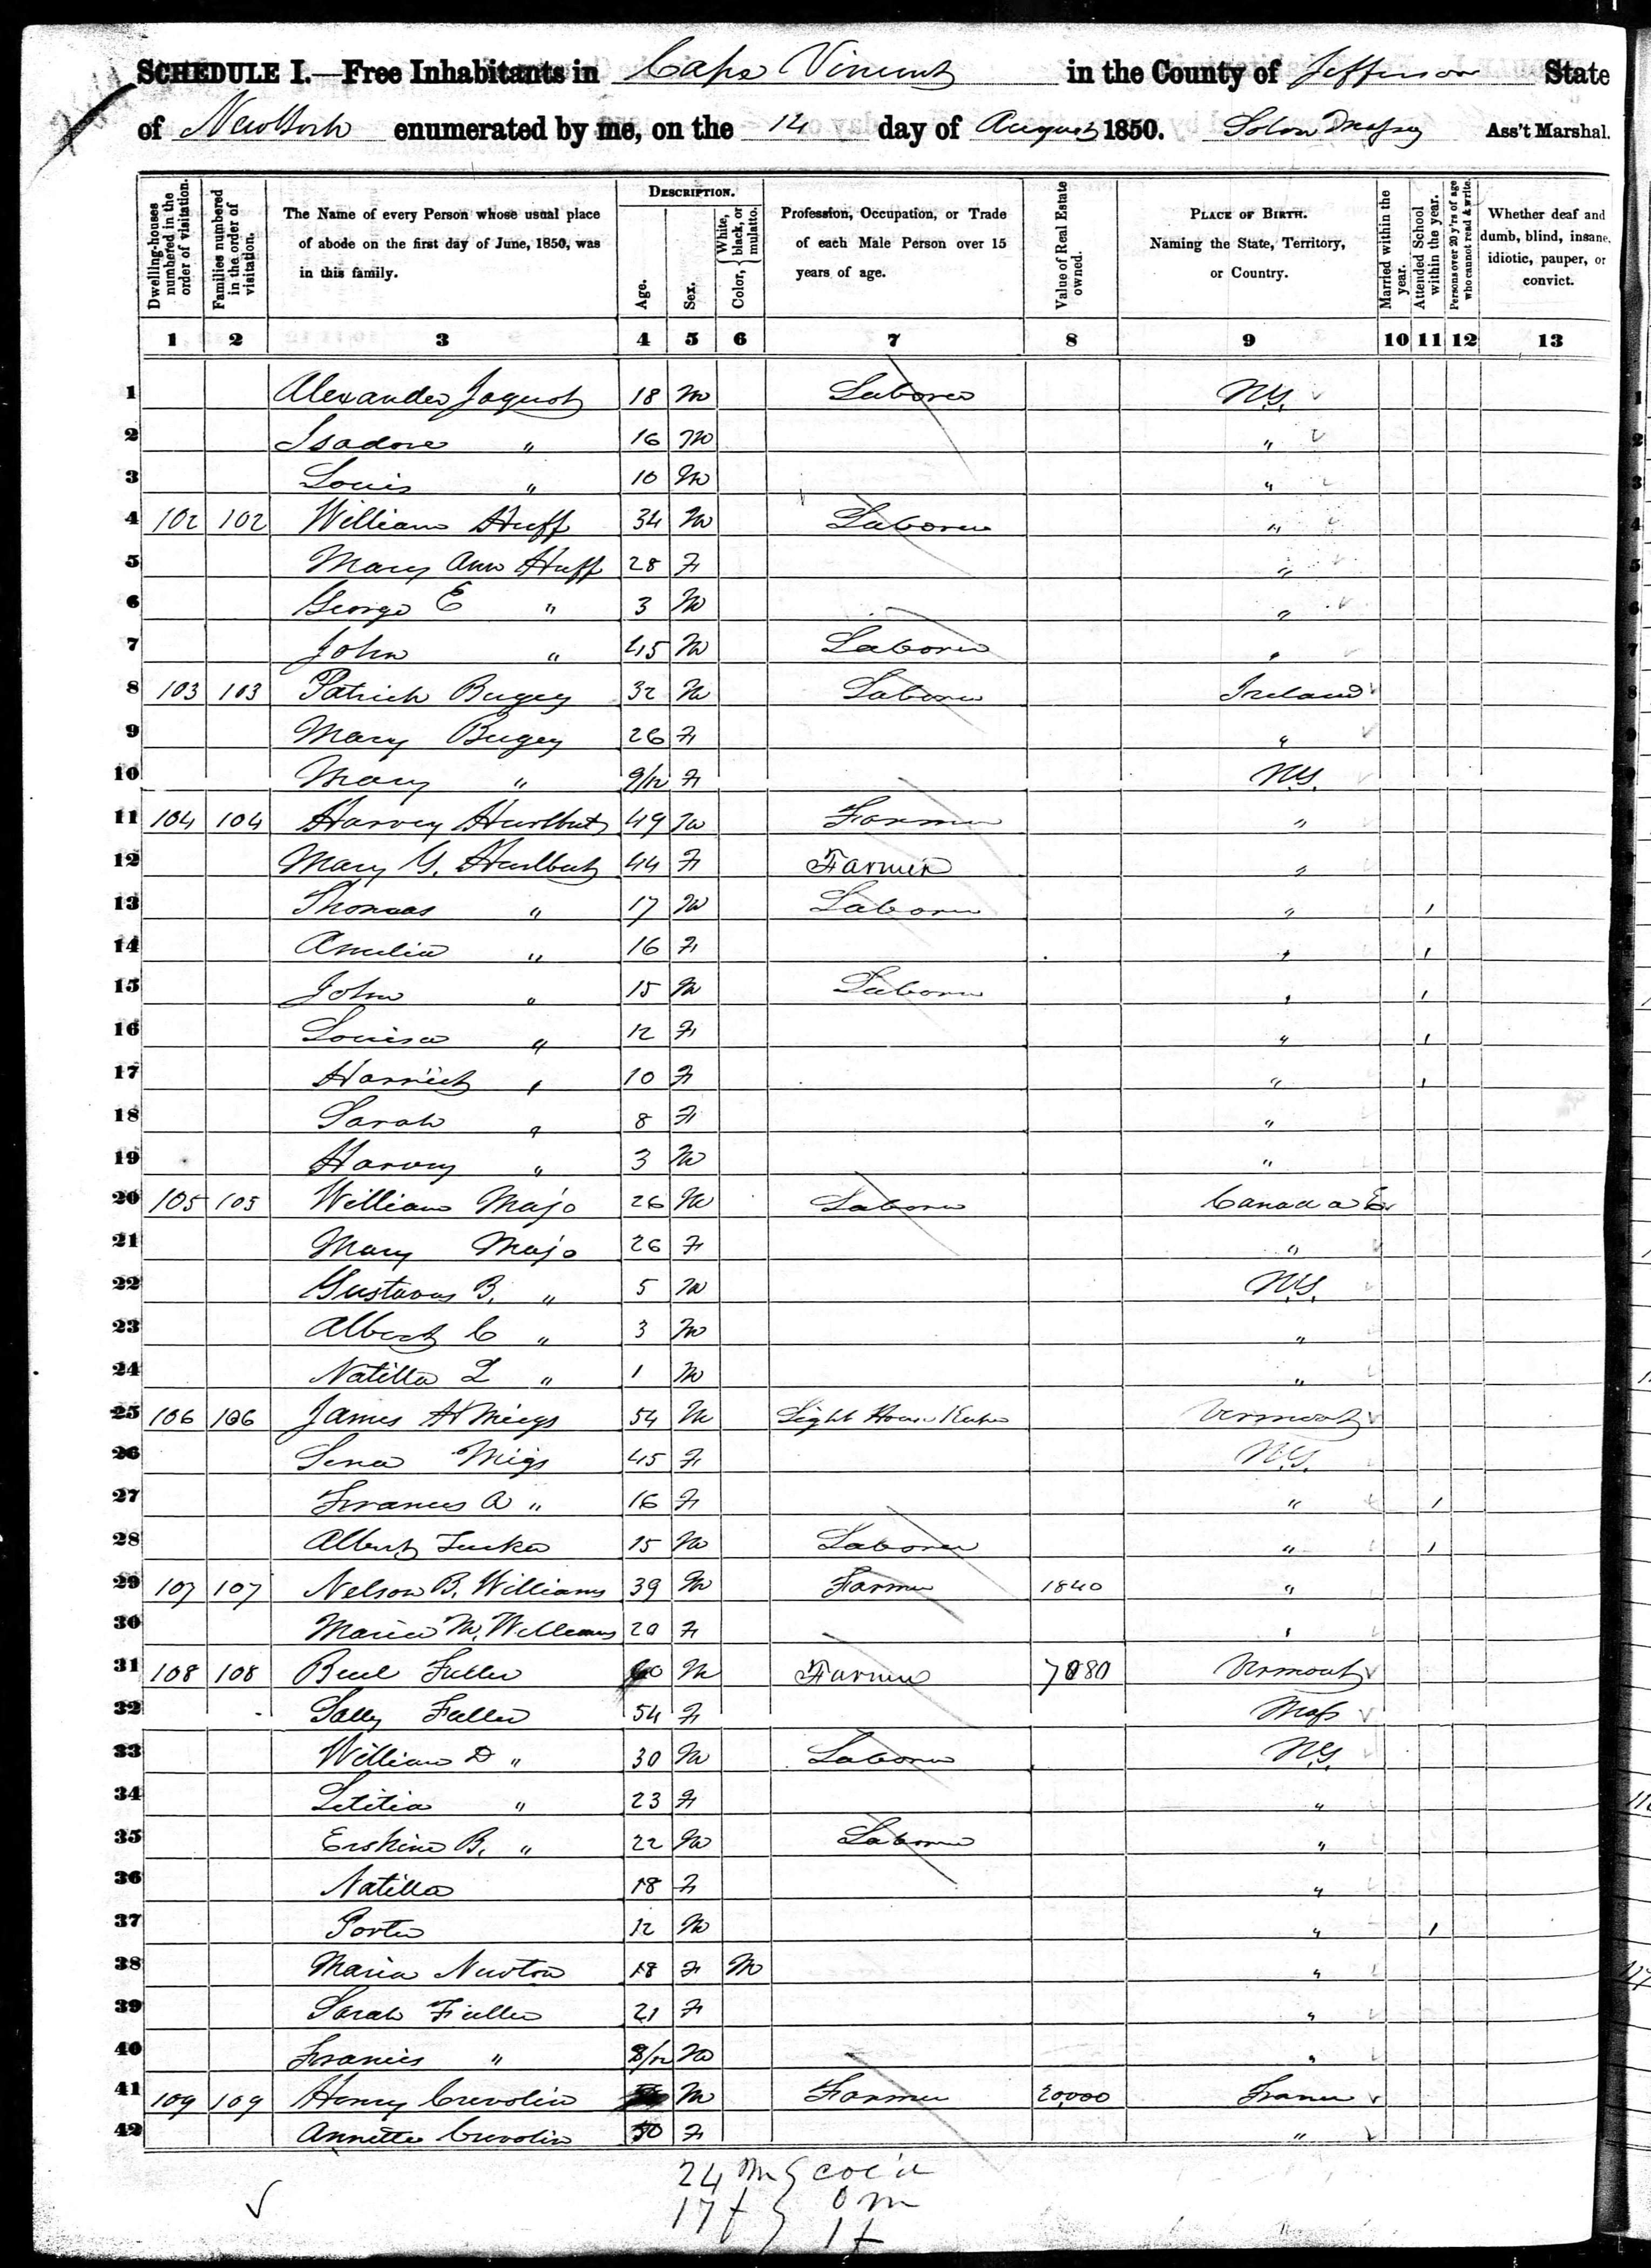 SCHEDULE I.—Free Inhabitants in Cape Vincent in the County of Jefferson State
of New York enumerated by me, on the 14 day of August 1850. Solon Massey Ass't Marshal.
Dwelling-houses numbered in the order of visitation.
Families numbered in the order of visitation.
The Name of every Person whose usual place of abode on the first day of June, 1850, was in this family.
DESCRIPTION.
Age.
Sex.
Color, { White, black, or mulatto.
Profession, Occupation, or Trade of each Male Person over 15 years of age.
Value of Real Estate owned.
PLACE OF BIRTH. Naming the State, Territory, or Country.
Married within the year.
Attended School within the year.
Persons over 20 y'rs of age who cannot read & write.
Whether deaf and dumb, blind, insane, idiotic, pauper, or convict.
1 2 3 4 5 6 7 8 9 10 11 12 13
1 Alexander Jaquot 18 M Laborer N.Y. 1
2 Isadore " 16 M " 2
3 Louis " 10 M " 3
4 102 102 William Huff 34 M Laborer " 4
5 Mary Ann Huff 28 F " 5
6 George E " 3 M " 6
7 John " 45 M Laborer " 7
8 103 103 Patrick Bugey 32 M Laborer Ireland 8
9 Mary Bugey 26 F "
10 Mary " 9/12 F N.Y.
11 104 104 Harvey Hurlbut 49 M Farmer "
12 Mary G. Hurlbut 44 F Farmer "
13 Thomas " 17 M Laborer " /
14 Amelia " 16 F " /
15 John " 15 M Laborer " /
16 Louisa " 12 F " /
17 Harriet " 10 F " /
18 Sarah " 8 F "
19 Harvey " 3 M "
20 105 105 William Majo 26 M Laborer Canada E.
21 Mary Majo 26 F "
22 Gustavus B. " 5 M N.Y.
23 Albert C " 3 M "
24 Natilla L " 1 M "
25 106 106 James H Miegs 54 M Light House Keeper Vermont
26 Sena Migs 45 F N.Y.
27 Frances A " 16 F " /
28 Albert Tucker 15 M Laborer " /
29 107 107 Nelson B. Williams 39 M Farmer 1840 "
30 Maria M. Williams 20 F "
31 108 108 Buel Fuller 60 M Farmer 7080 Vermont
32 Sally Fuller 54 F Mass
33 William D " 30 M Laborer N.Y.
34 Letitia " 23 F "
35 Erskine B. " 22 M Laborer "
36 Natilla 18 F "
37 Porter 12 M " /
38 Maria Newton 18 F M "
39 Sarah Fuller 21 F "
40 Francis " 8/12 M "
41 109 109 Henry Crevolin M Farmer 20,000 France
42 Annette Crevolin 50 F "
24 m } col'd
17 f } 0 m
1 f